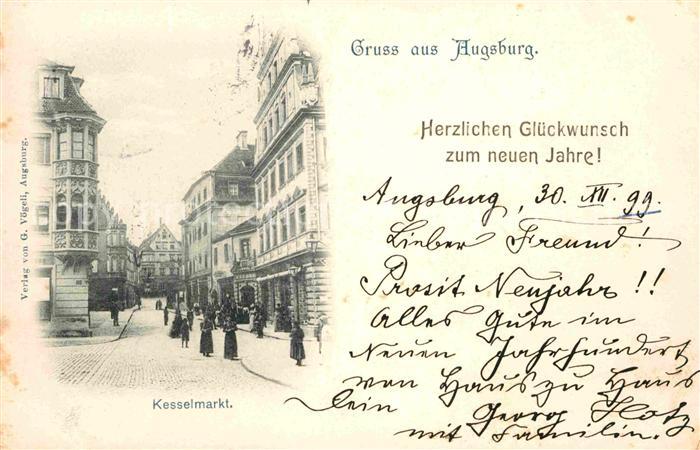 Gruss aus Augsburg.
Herzlichen Glückwunsch
zum neuen Jahre!
Augsburg, 30. XII. 99.
Lieber Freund!
Prosit Neujahr!!
Alles Gute im
Neuen Jahrhundert
von Haus zu Haus
Dein Georg Hotz
mit Familin.
Kesselmarkt.
Verlag von G. Vögeli, Augsburg.